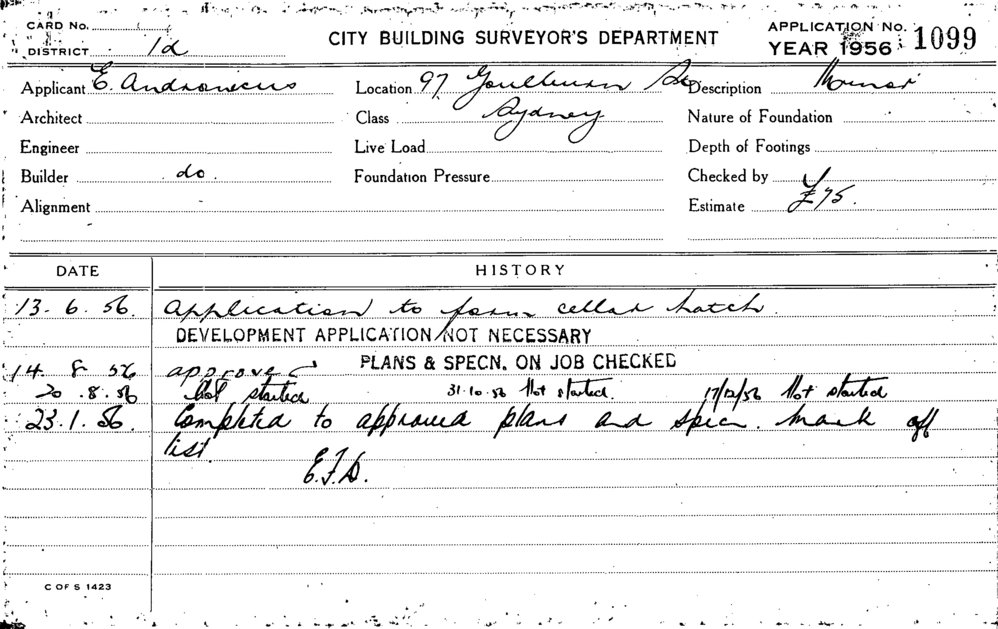 CARD No.
DISTRICT 1d
CITY BUILDING SURVEYOR'S DEPARTMENT
APPLICATION No. 1099
YEAR 1956
Applicant E. Andronicus
Location 97 Goulburn St
Description Minor
Architect
Class Sydney
Nature of Foundation
Engineer
Live Load
Depth of Footings
Builder do.
Foundation Pressure
Checked by
Alignment
Estimate £75.
DATE HISTORY
13. 6. 56. Application to form cellar hatch.
DEVELOPMENT APPLICATION NOT NECESSARY
PLANS & SPECN. ON JOB CHECKED
14. 8. 56 approved
20. 8. 56 Not started 31.10.56 Not started. 17/12/56 Not started
23.1.56. Completed to approved plans and specn. Mark off
list.
E.F.D.
C OF S 1423